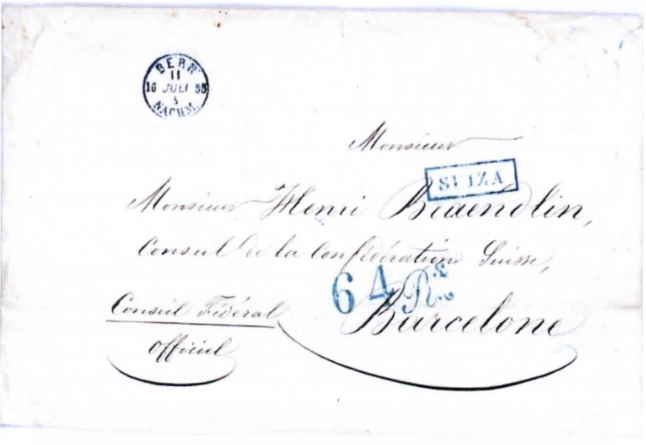 BERN
11
16 JULI 55
NACHM.
Monsieur
SUIZA
Monsieur Henri Braendlin,
Consul de la Confédération Suisse,
64 Rs
Conseil Fédéral Barcelone
Officiel